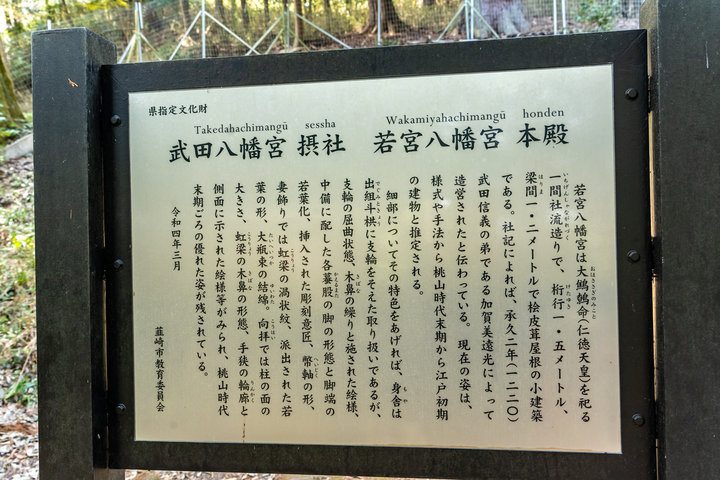 県指定文化財
Takedahachimangū sessha Wakamiyahachimangū honden
武田八幡宮 摂社 若宮八幡宮 本殿
若宮八幡宮は大鷦鷯命(仁徳天皇)を祀る
一間社流造りで、桁行一・五メートル、
梁間一・二メートルで桧皮葺屋根の小建築
である。社記によれば、承久二年(一二二〇)
武田信義の弟である加賀美遠光によって
造営されたと伝わっている。現在の姿は、
様式や手法から桃山時代末期から江戸初期
の建物と推定される。
細部についてその特色をあげれば、身舎は
出組斗栱に支輪をそえた取り扱いであるが、
支輪の屈曲状態、木鼻の繰りと施された絵様、
中備に配した各蟇股の脚の形態と脚端の
若葉化、挿入された彫刻意匠、幣軸の形、
妻飾りでは虹梁の渦状紋、派出された若
葉の形、大瓶束の結綿。向拝では柱の面の
大きさ、虹梁の木鼻の形態、手狭の輪廓と
側面に示された絵様等がみられ、桃山時代
末期ごろの優れた姿が残されている。
令和四年三月
韮崎市教育委員会